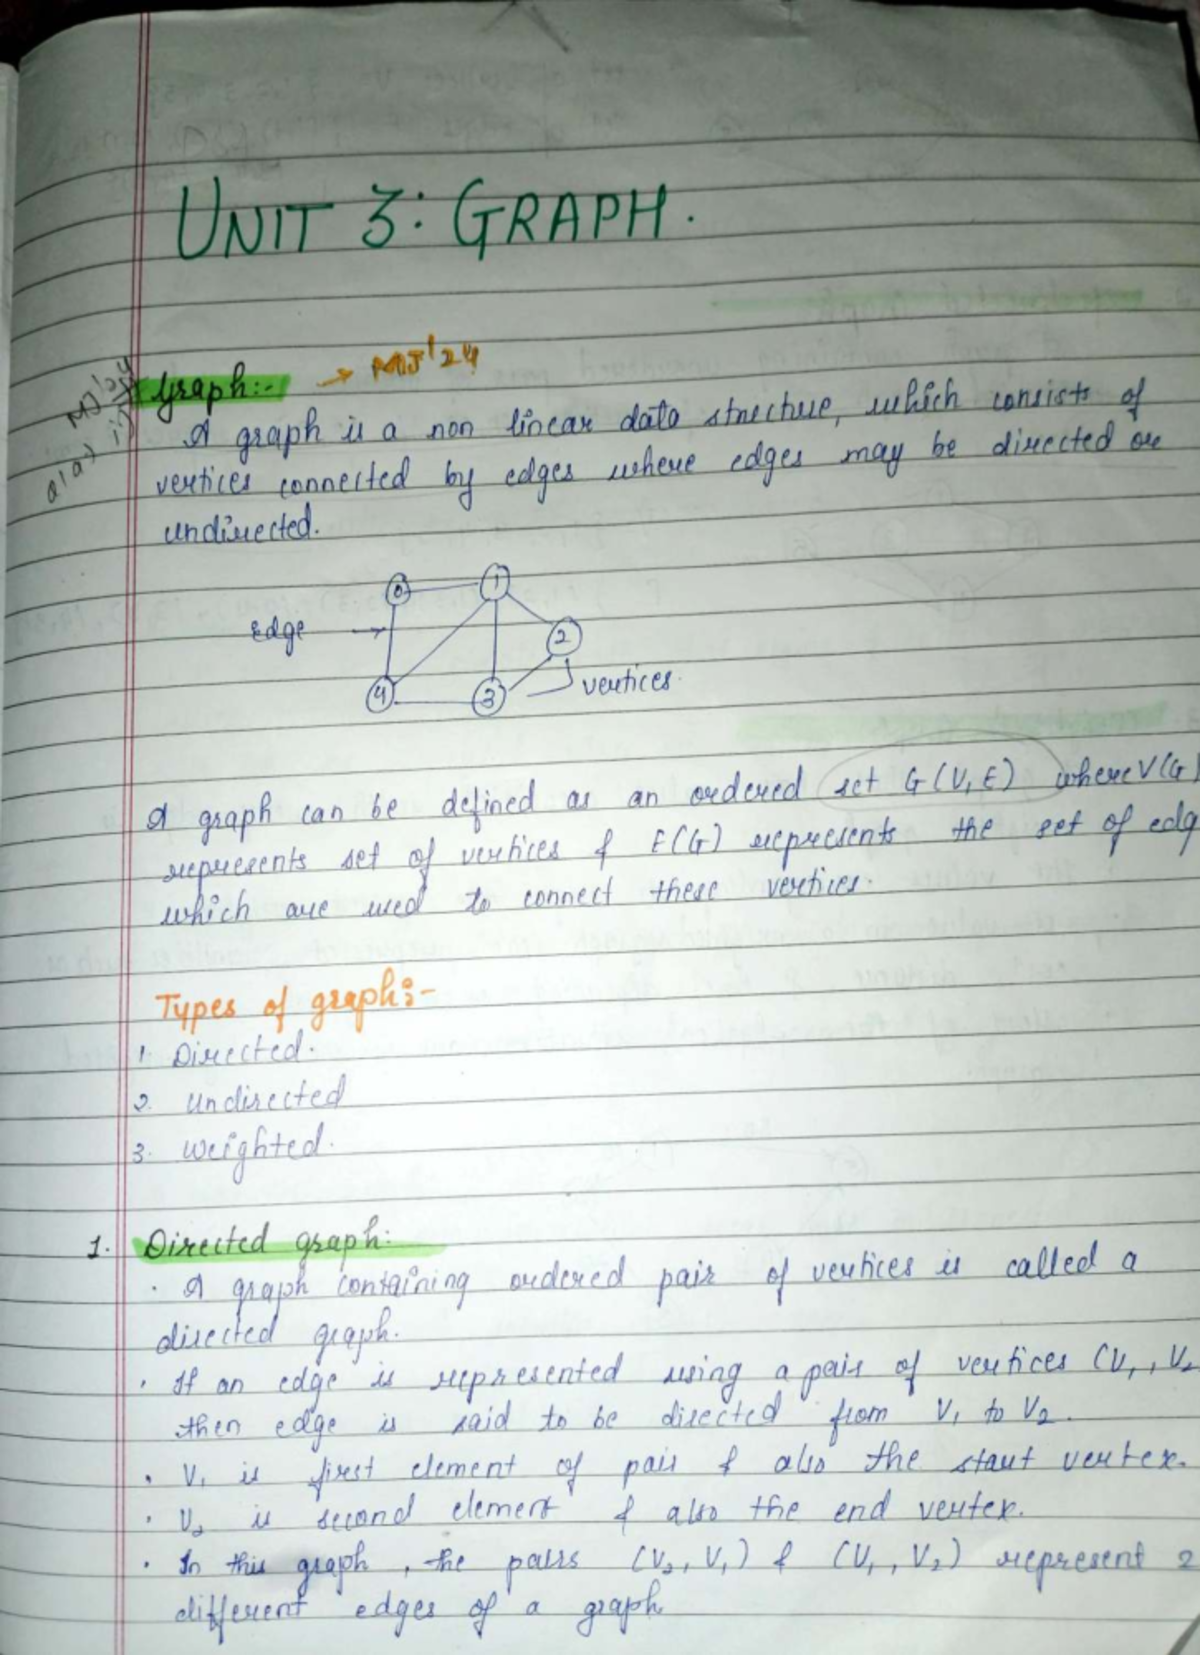 UNIT 3: GRAPH.
Graph:- → MJ'24
MJ'24
Q1a) i)
A graph is a non linear data structure, which consists of
vertices connected by edges where edges may be directed or
undirected.
0 1
Edge →
2
4 3 vertices.
A graph can be defined as an ordered set G(V,E) where V(G)
represents set of vertices & E(G) represents the set of edg
which are used to connect these vertices.
Types of graph:-
1. Directed.
2. undirected
3. weighted.
1. Directed graph:
· A graph containing ordered pair of vertices is called a
directed graph.
· If an edge is represented using a pair of vertices (V1, V2
then edge is said to be directed from V1 to V2.
· V1 is first element of pair & also the start vertex.
· V2 is second element & also the end vertex.
· In this graph, the pairs (V2, V1) & (V1, V2) represent 2
different edges of a graph